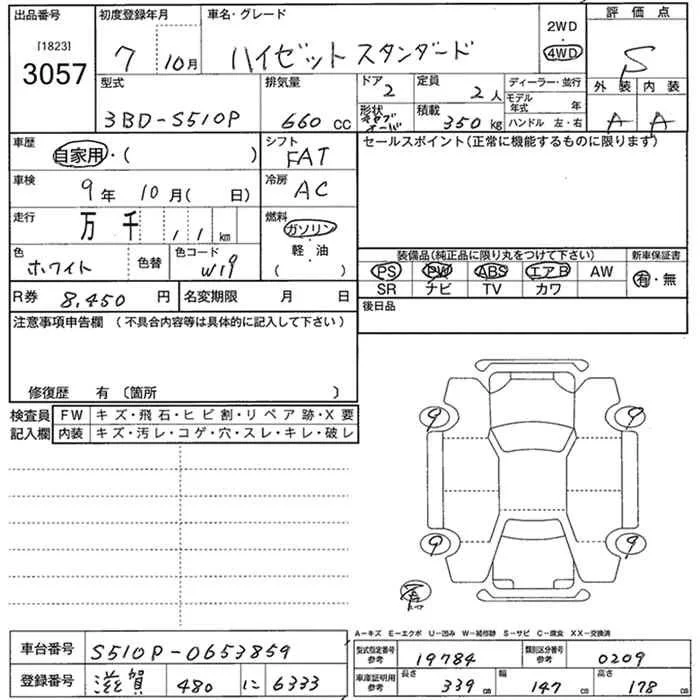 出品番号 初度登録年月 車名・グレード 2WD 評価点
[1823] 3057 7 10月 ハイゼット スタンダード 4WD S
型式 排気量 ドア 定員 ディーラー・並行 外装 内装
3BD-S510P 660 cc 2 2人 モデル年式 年 A A
形状 積載 350 kg ハンドル 左・右
車歴 自家用・( ) シフト FAT セールスポイント(正常に機能するものに限ります)
車検 9年 10月( 日) 冷房 AC
走行 万 千 11 km 燃料 ガソリン・軽・油 ( )
色 ホワイト 色替 色コード W19
装備品(純正品に限り丸をつけて下さい) 新車保証書
PS PW ABS エアB AW 有・無
SR ナビ TV カワ
R券 8,450 円 名変期限 月 日 後日品
注意事項申告欄 (不具合内容等は具体的に記入して下さい)
修復歴 有 〔箇所 〕
検査員 FW キズ・飛石・ヒビ割・リペア跡・X要
記入欄 内装 キズ・汚レ・コゲ・穴・スレ・キレ・破レ
9 9
9 9
A-キズ E-エクボ U-凹み W-補修跡 S-サビ C-腐食 XX-交換済
車台番号 S510P-0653859 型式指定番号 参考 19784 類別区分番号 参考 0209
登録番号 滋賀 480 に 6333 車庫証明用 参考 長さ 339 cm 幅 147 cm 高さ 178 cm